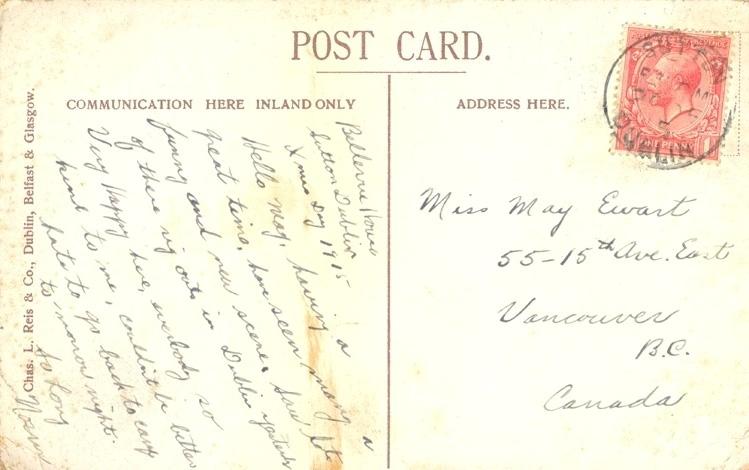 POST CARD.
COMMUNICATION HERE INLAND ONLY
ADDRESS HERE.
Chas. L. Reis & Co., Dublin, Belfast & Glasgow.
SUTTON
DUBLIN
ONE PENNY
Bellevue House
Sutton Dublin
Xmas Day 1915
Hello May, having a
great time, have seen many a
funny and new scene. Saw lots
of there in Dublin yesterday
Very Happy here, everybody so
kind to me, couldn't be better
hate to go back to camp
to morrow night.
So Long
Miss May Ewart
55-15th Ave. East
Vancouver
B.C.
Canada